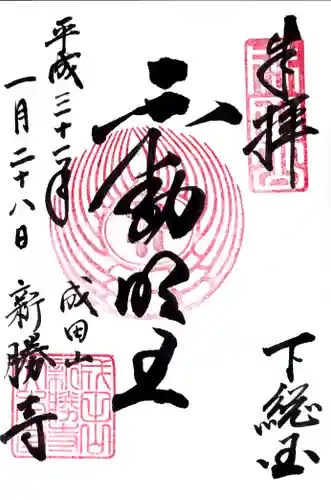 奉拝
下総国
不動明王
平成三十一年
一月二十八日
成田山
新勝寺